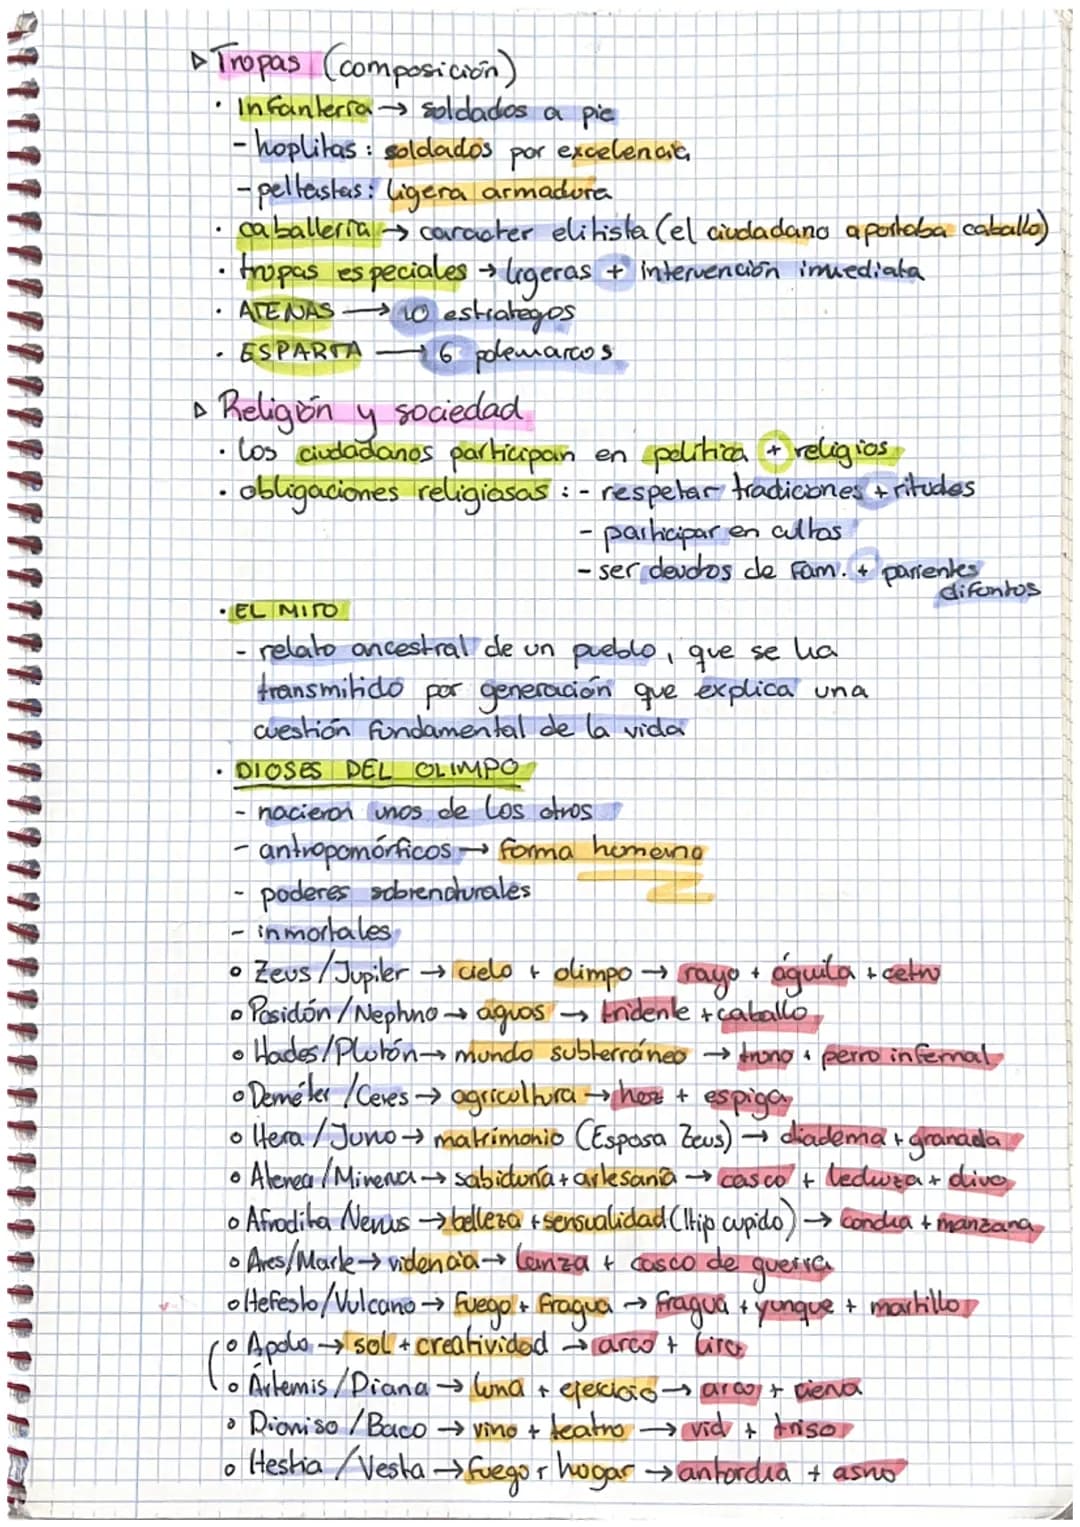 ▷ Tropas (composición)
· infantería → soldados a pie
- hoplitas : soldados por excelencia
- peltastas : ligera armadura
· caballería → caracter elitista (el ciudadano aportaba caballo)
· tropas especiales → ligeras + intervención inmediata
· ATENAS → 10 estrategos
· ESPARTA → 6 polemarcos
▷ Religión y sociedad
· los ciudadanos participan en política + religios
· obligaciones religiosas : - respetar tradiciones + ritudes
- participar en cultos
- ser deudos de Fam. + parientes
difuntos
· EL MITO
- relato ancestral de un pueblo, que se ha
transmitido por generación que explica una
cuestión fundamental de la vida
· DIOSES DEL OLIMPO
- nacieron unos de los otros
- antropomórficos → forma humana
- poderes sobrenaturales
- inmortales
o Zeus/Jupiter → cielo + olimpo → rayo + águila + cetro
o Posidón/Neptuno → aguas → tridente + caballo
o Hades/Plutón → mundo subterráneo → trono + perro infernal
o Deméter/Ceres → agricultura → hoz + espiga
o Hera/Juno → matrimonio (Esposa Zeus) → diadema + granada
o Atenea/Minerva → sabiduría + artesanía → casco + lechuza + olivo
o Afrodita/Venus → belleza + sensualidad (Hijo cupido) → concha + manzana
o Ares/Marte → violencia → lanza + casco de guerra
o Hefesto/Vulcano → Fuego + Fragua → Fragua + yunque + martillo
o Apolo → sol + creatividad → arco + lira
o Ártemis/Diana → luna + ejercicio → arco + cierva
o Dioniso/Baco → vino + teatro → vid + triso
o Hestia/Vesta → fuego + hogar → antorcha + asno